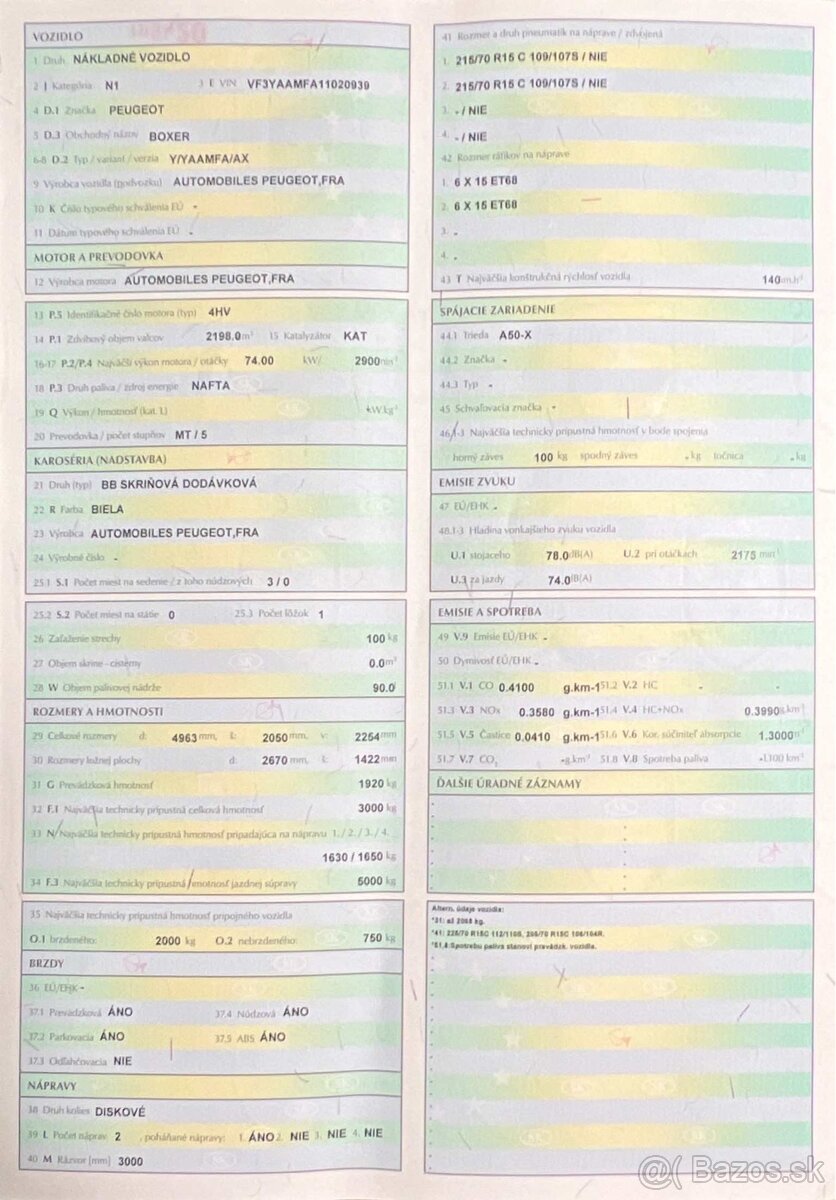 VOZIDLO
1 Druh NÁKLADNÉ VOZIDLO
2 J Kategória N1 3 E VIN VF3YAAMFA11020939
4 D.1 Značka PEUGEOT
5 D.3 Obchodný názov BOXER
6-8 D.2 Typ / variant / verzia Y/YAAMFA/AX
9 Výrobca vozidla (podvozku) AUTOMOBILES PEUGEOT,FRA
10 K Číslo typového schválenia EÚ -
11 Dátum typového schválenia EÚ -
MOTOR A PREVODOVKA
12 Výrobca motora AUTOMOBILES PEUGEOT,FRA
13 P.5 Identifikačné číslo motora (typ) 4HV
14 P.1 Zdvihový objem valcov 2198.0 15 Katalyzátor KAT
16-17 P.2/P.4 Najväčší výkon motora / otáčky 74.00 kW/ 2900min-1
18 P.3 Druh paliva / zdroj energie NAFTA
19 Q Výkon / hmotnosť (kat. L) kW.kg-1
20 Prevodovka / počet stupňov MT / 5
KAROSÉRIA (NADSTAVBA)
21 Druh (typ) BB SKRIŇOVÁ DODÁVKOVÁ
22 R Farba BIELA
23 Výrobca AUTOMOBILES PEUGEOT,FRA
24 Výrobné číslo -
25.1 S.1 Počet miest na sedenie / z toho núdzových 3 / 0
25.2 S.2 Počet miest na státie 0 25.3 Počet lôžok 1
26 Zaťaženie strechy 100 kg
27 Objem skrine - cisterny 0.0 m3
28 W Objem palivovej nádrže 90.0
ROZMERY A HMOTNOSTI
29 Celkové rozmery d: 4963 mm, š: 2050 mm, v: 2254 mm
30 Rozmery ložnej plochy d: 2670 mm, š: 1422 mm
31 G Prevádzková hmotnosť 1920 kg
32 F.1 Najväčšia technicky prípustná celková hmotnosť 3000 kg
33 N Najväčšia technicky prípustná hmotnosť pripadajúca na nápravu 1. / 2. / 3. / 4.
1630 / 1650 kg
34 F.3 Najväčšia technicky prípustná hmotnosť jazdnej súpravy 5000 kg
35 Najväčšia technicky prípustná hmotnosť prípojného vozidla
O.1 brzdeného: 2000 kg O.2 nebrzdeného: 750 kg
BRZDY
36 EÚ/EHK -
37.1 Prevádzková ÁNO 37.4 Núdzová ÁNO
37.2 Parkovacia ÁNO 37.5 ABS ÁNO
37.3 Odľahčovacia NIE
NÁPRAVY
38 Druh kolies DISKOVÉ
39 L Počet náprav 2 , poháňané nápravy: 1. ÁNO 2. NIE 3. NIE 4. NIE
40 M Rázvor [mm] 3000
41 Rozmer a druh pneumatík na náprave / zdvojená
1. 215/70 R15 C 109/107S / NIE
2. 215/70 R15 C 109/107S / NIE
3. - / NIE
4. - / NIE
42 Rozmer ráfikov na náprave
1. 6 X 15 ET68
2. 6 X 15 ET68
3. -
4. -
43 T Najväčšia konštrukčná rýchlosť vozidla 140 km.h-1
SPÁJACIE ZARIADENIE
44.1 Trieda A50-X
44.2 Značka -
44.3 Typ -
45 Schvaľovacia značka -
46.1-3 Najväčšia technicky prípustná hmotnosť v bode spojenia
horný záves 100 kg spodný záves - kg točnica - kg
EMISIE ZVUKU
47 EÚ/EHK -
48.1-3 Hladina vonkajšieho zvuku vozidla
U.1 stojaceho 78.0 dB(A) U.2 pri otáčkach 2175 min-1
U.3 za jazdy 74.0 dB(A)
EMISIE A SPOTREBA
49 V.9 Emisie EÚ/EHK -
50 Dymivosť EÚ/EHK -
51.1 V.1 CO 0.4100 g.km-1 51.2 V.2 HC - -
51.3 V.3 NOx 0.3580 g.km-1 51.4 V.4 HC+NOx 0.3990 g.km-1
51.5 V.5 Častice 0.0410 g.km-1 51.6 V.6 Kor. súčiniteľ absorpcie 1.3000
51.7 V.7 CO2 - g.km-1 51.8 V.8 Spotreba paliva - l.100 km-1
ĎALŠIE ÚRADNÉ ZÁZNAMY
Altern. údaje vozidla:
*31: až 2068 kg.
*41: 225/70 R15C 112/110S, 205/70 R15C 106/104R.
*51.8 Spotrebu paliva stanoví prevádzk. vozidla.
@( Bazos.sk